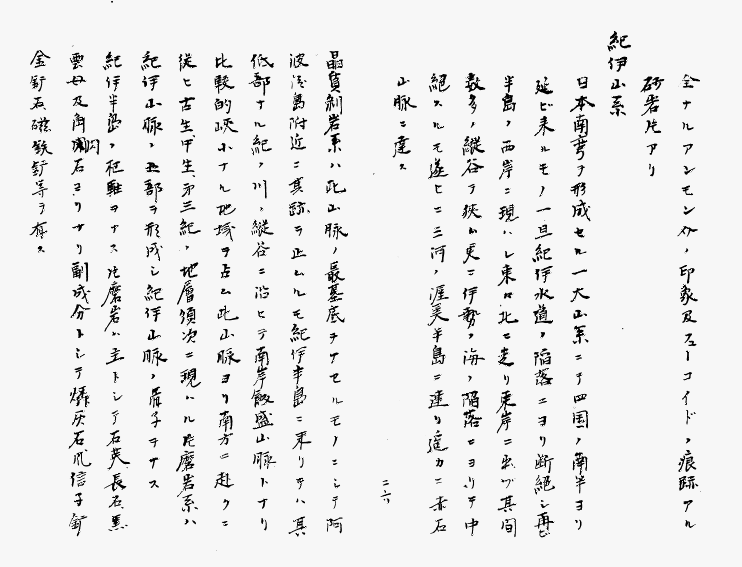 全ナルアンモン介ノ印象及フューコイドノ痕跡アル
砂岩片アリ
紀伊山系
日本南弯ヲ形成セル一大山系ニテ四国ノ南半ヨリ
延ビ来ルモノ一旦紀伊水道ノ陥落ニヨリ断絶シ再ビ
半島ノ西岸ニ現ハレ東々北ニ走リ東岸ニ出ヅ其間
数多ノ縦谷ヲ狭ム更ニ伊勢ノ海ノ陥落ニヨリテ中
絶スルモ遂ヒニ三河ノ渥美半島ニ連リ遙カニ赤石
山脈ニ達ス
二六
晶質剝岩系ハ此山脈ノ最基底ヲナセルモノニシテ阿
波沼島附近ニ其跡ヲ止ムルモ紀伊半島ニ来リテハ其
低部ナル紀ノ川ノ縦谷ニ沿ヒテ南岸飯盛山脈トナリ
比較的峡小ナル地域ヲ占ム此山脈ヨリ南方ニ赴クニ
従ヒ古生中生第三紀ノ地層順次ニ現ハル片麿岩系ハ
紀伊山脈ノ一部ヲ形成シ紀伊山脈ノ骨子ヲナス
紀伊半島ノ枢軸ヲナス片麿岩ハ主トシテ石英長石黒
雲母及角閃石ヨリナリ副成分トシテ燐灰石風信子鉱
金鉱石磁鉄鉱等ヲ存ス